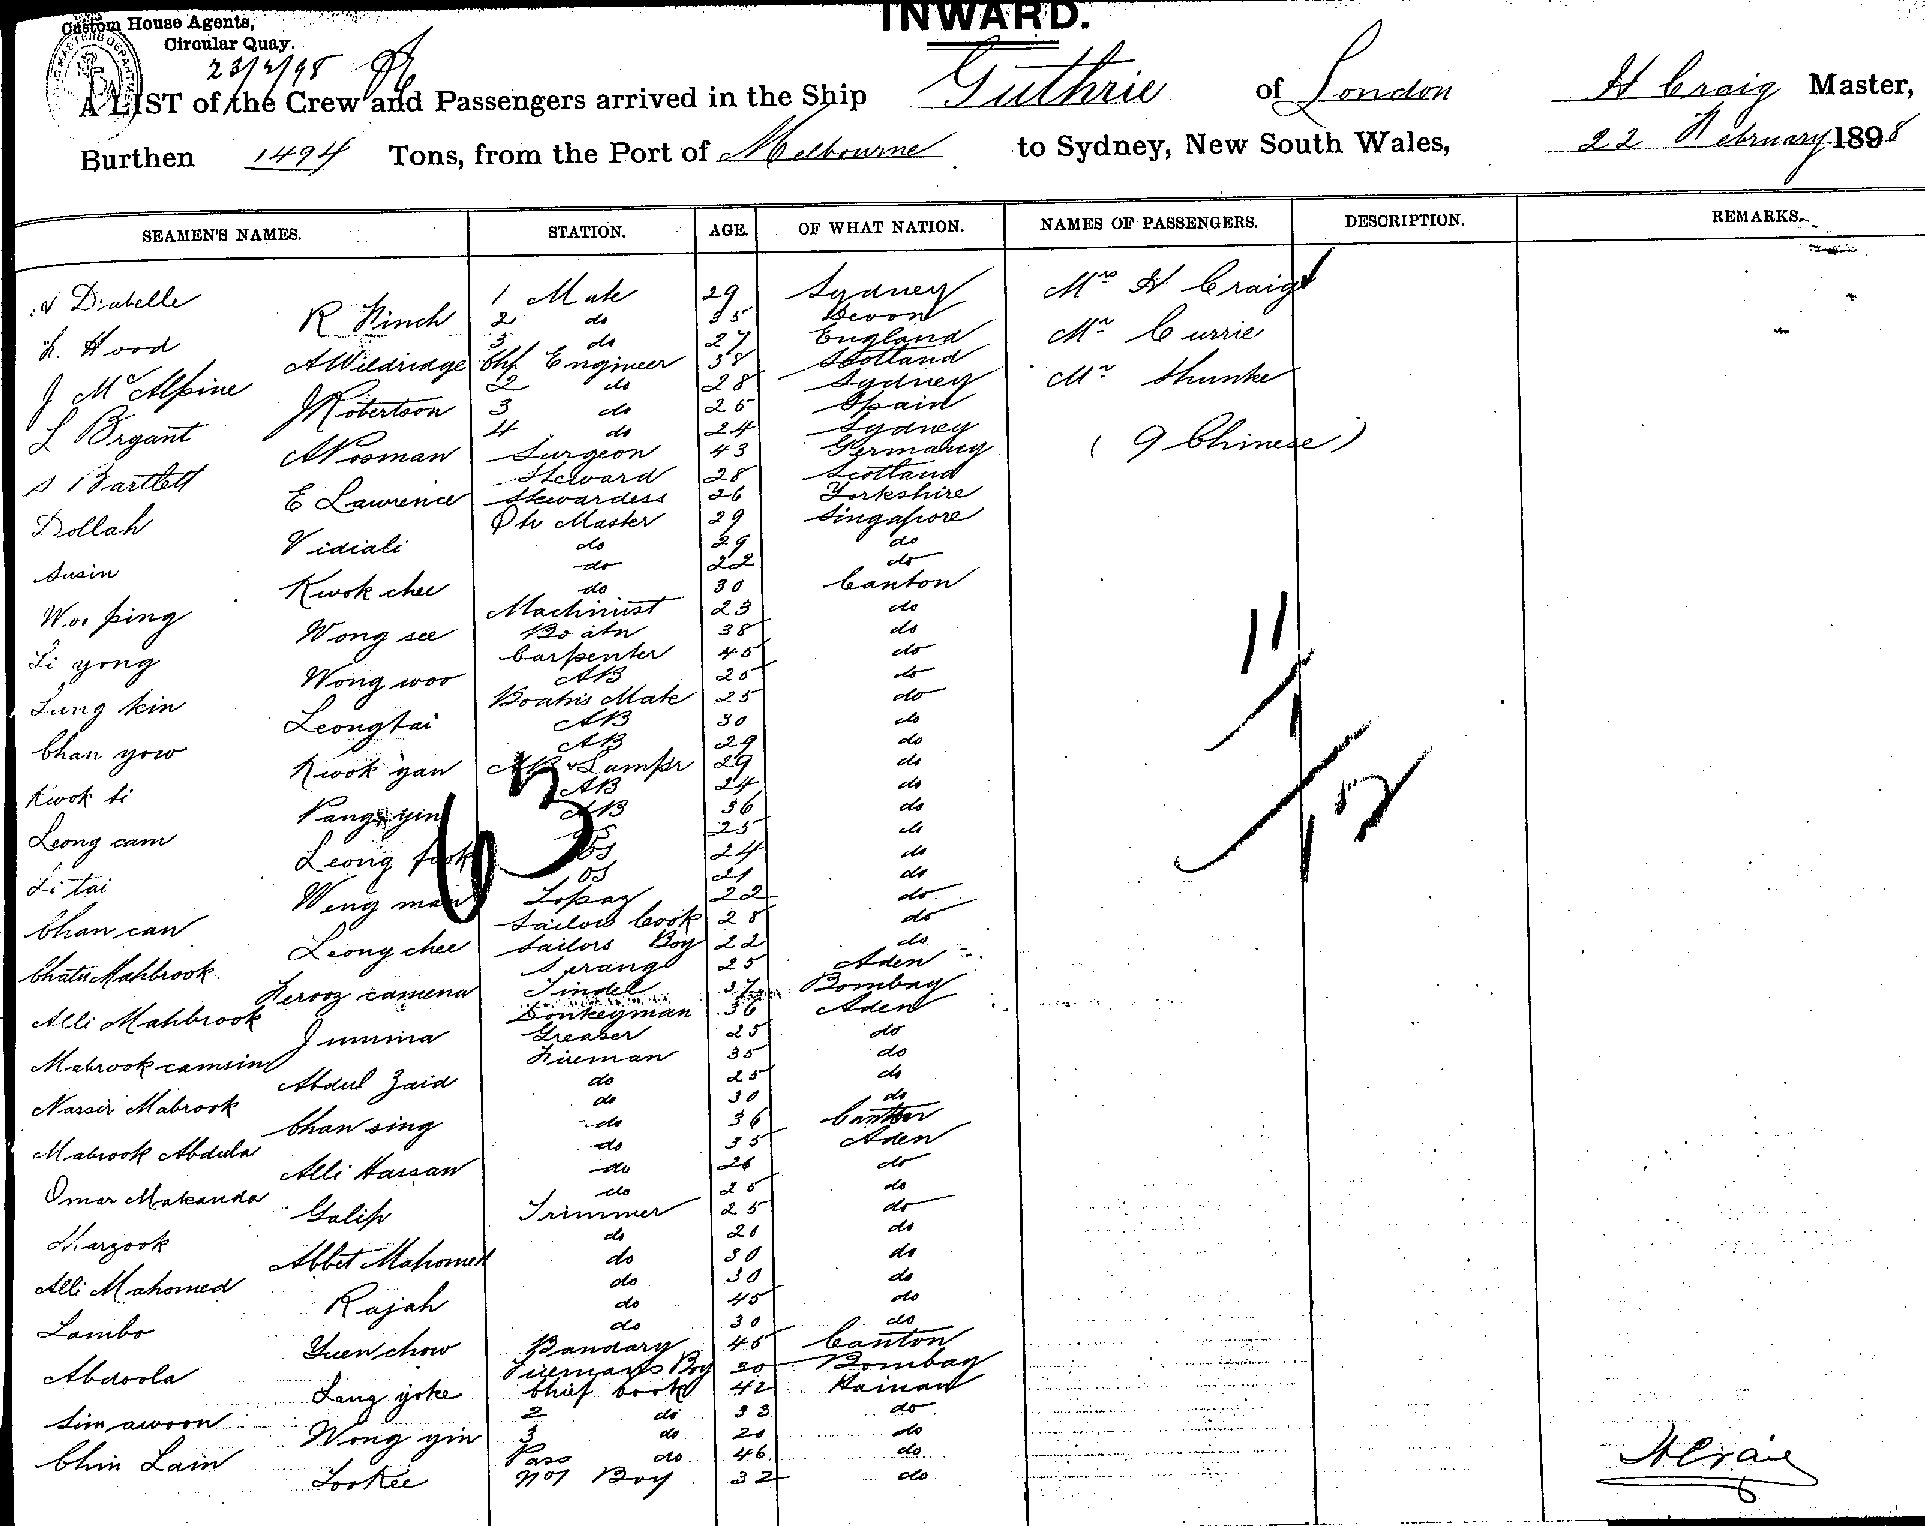 INWARD.
Custom House Agents,
Circular Quay.
23/2/98
A LIST of the Crew and Passengers arrived in the Ship Guthrie of London H Craig Master,
Burthen 1494 Tons, from the Port of Melbourne to Sydney, New South Wales, 22 February 1898
SEAMEN'S NAMES. STATION. AGE. OF WHAT NATION. NAMES OF PASSENGERS. DESCRIPTION. REMARKS.
Diabelle 1 Mate 29 Sydney Mrs H Craig
R Finch 2 do 35 Devon
Hood 3 do 27 England Mr Currie
A Weldridge Chf Engineer 38 Scotland
J McAlpine 2 do 28 Sydney Mr Shunke
J Robertson 3 do 25 Spain
L Bryant 4 do 24 Sydney
A Rosman Surgeon 43 Germany (9 Chinese)
S Bartlett Steward 28 Scotland
E Lawrence Stewardess 26 Yorkshire
Dollah Qtr Master 29 Singapore
Vidiali do 29 do
Susin do 22 do
Kwok chee do 30 Canton
Woo ping Machinist 23 do
Wong see Boatn 38 do
Li yong Carpenter 45 do
Wong woo AB 25 do
Lung kin Boatns Mate 25 do
Leong tai AB 30 do
Chan yow AB 29 do
Kwok yan AB & Lampr 29 do
Kwok ti AB 24 do
Pang yin AB 36 do
Leong cam OS 25 do
Leong fook OS 24 do
Li tai OS 21 do
Wong man Topaz 22 do
Chan can Sailors Cook 28 do
Leong chee Sailors Boy 22 do
Mahbrook Serang 25 Aden
Ferooz camena Tindel 37 Bombay
Alli Mahbrook Donkeyman 36 Aden
Jumma Greaser 25 do
Mabrook camsin Fireman 35 do
Abdul Zaid do 25 do
Nassir Mabrook do 30 do
Chan sing do 36 Canton
Mabrook Abdula do 35 Aden
Alli Hassan do 26 do
Omar Makanda do 25 do
Galip Trimmer 25 do
Marzook do 20 do
Abbet Mahomed do 30 do
Alli Mahomed do 30 do
Rajah do 45 do
Lambo do 30 do
Yuen chow Bandary 45 Canton
Abdoola Firemans Boy 20 Bombay
Lang yoke Chief Cook 42 Hainan
Sim awoon 2 do 33 do
Wong yin 3 do 20 do
Chin Lain do 46 do
Lookee No 1 Boy 32 do
11
12
63
H Craig